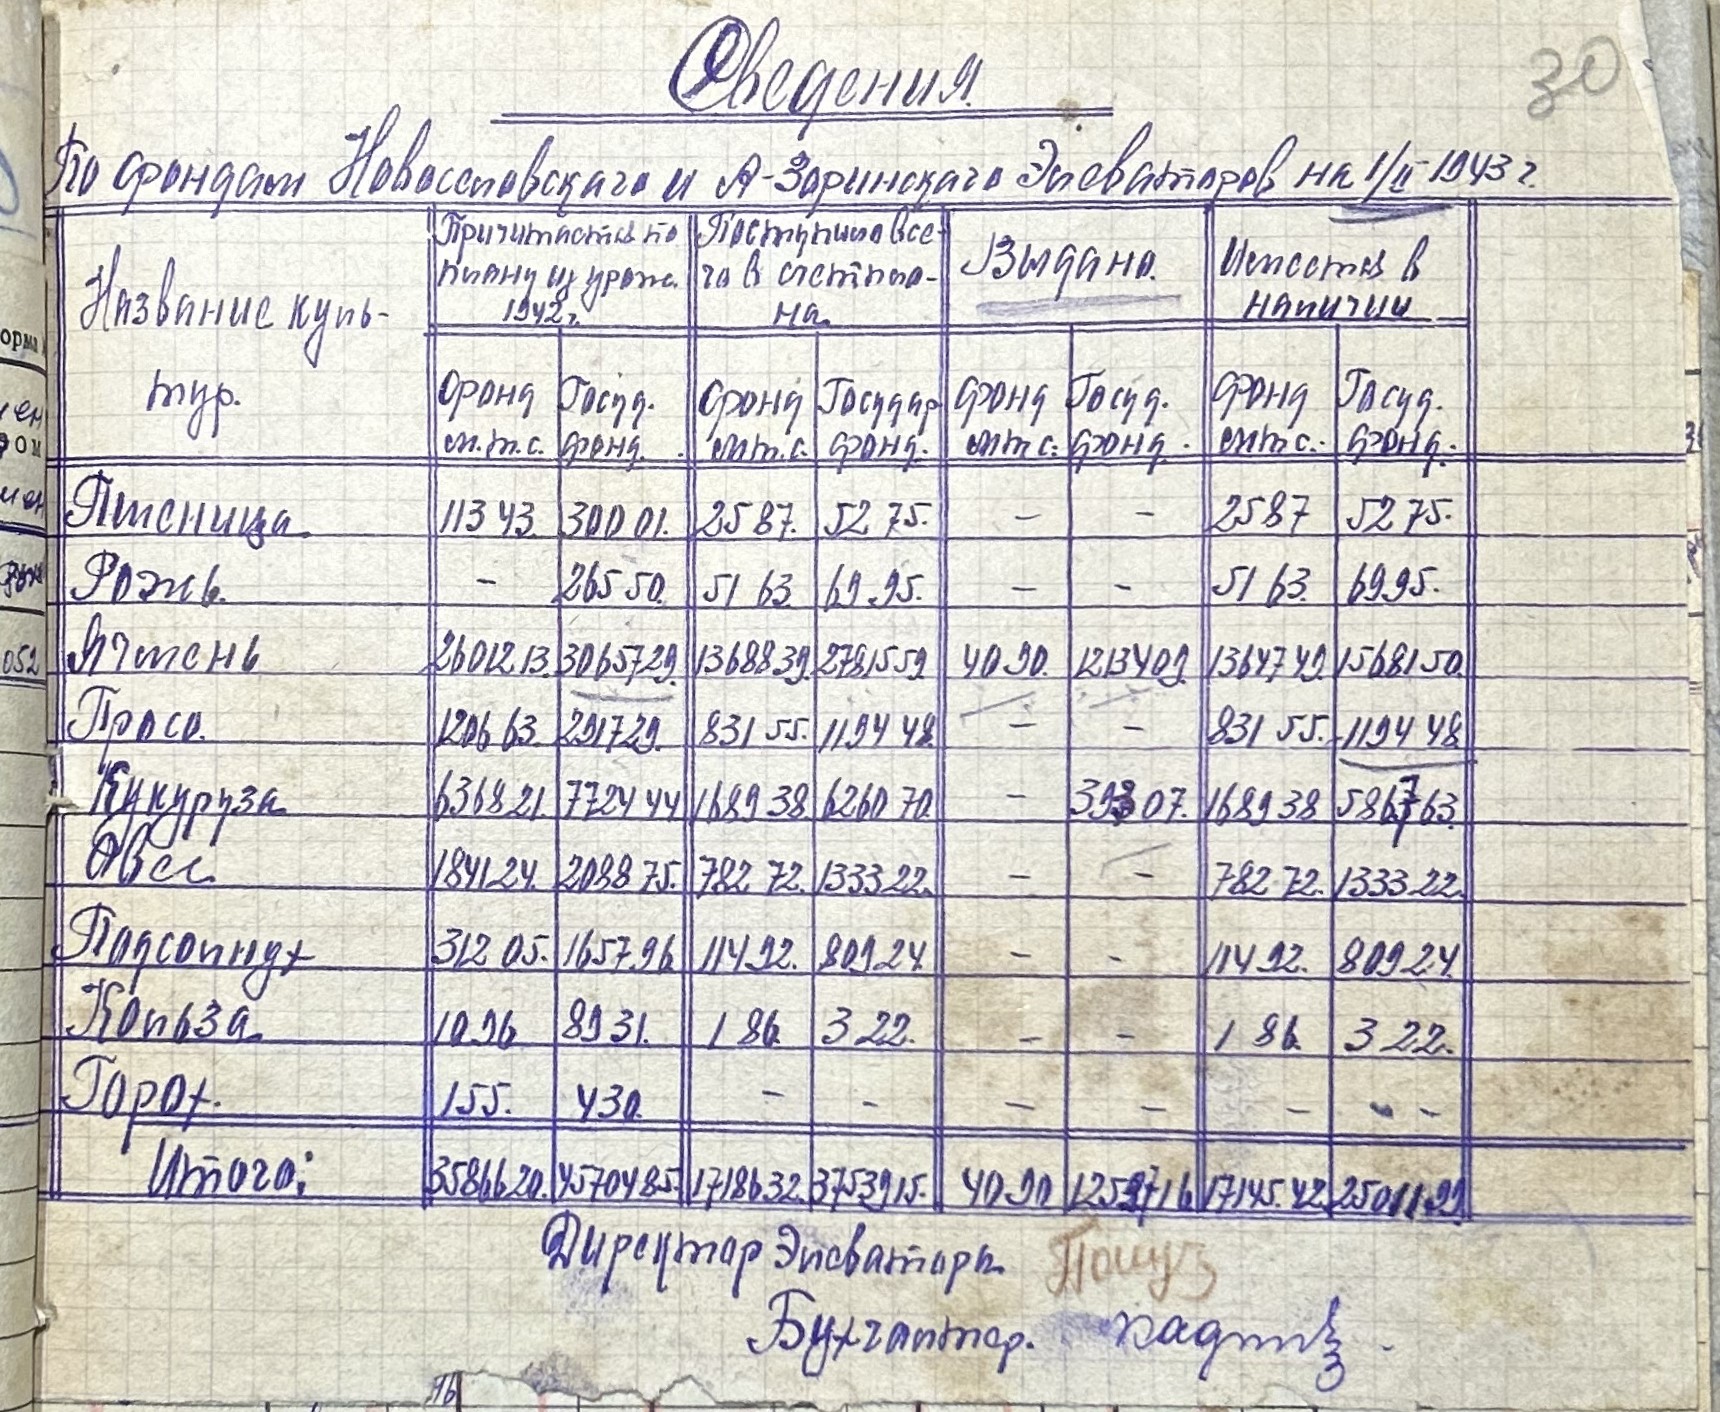 30
Сведения
По фондам Новоселовскаго и А-Зоринскаго Элеваторов на 1/II-1943 г.
Название культур. | Причитается по плану из урож. 1942 г. | Поступило все-го в счет пла-на | Выдано. | Имеется в наличии
Фонд м.т.с. | Госуд. фонд. | Фонд м.т.с. | Государ фонд. | Фонд м.т.с. | Госуд. фонд. | Фонд м.т.с. | Госуд. фонд.
Пшеница | 113 43. | 300 01. | 25 87. | 52 75. | – | – | 25 87 | 52 75.
Рожь. | – | 265 50. | 51 63. | 69.95. | – | – | 51 63. | 69 95.
Ячмень | 26012.13. | 30657.29. | 13688 39. | 27815 59 | 40 90. | 12134 09. | 13647 49. | 15681 50.
Просо. | 1206 63. | 2917 29. | 831 55. | 1194 48. | – | – | 831 55. | 1194 48.
Кукуруза | 6368 21. | 7724 44 | 1689 38 | 6260 70. | – | 393 07. | 1689 38 | 5867 63.
Овес. | 1841 24. | 2088 75. | 782 72. | 1333 22. | – | – | 782 72. | 1333 22.
Подсолнух | 312 05. | 1657.96. | 114 92. | 809 24. | – | – | 114 92. | 809 24.
Кольза | 10 96 | 89 31. | 1 86. | 3 22. | – | – | 1 86. | 3 22.
Горох. | 1 55. | 4 30. | – | – | – | – | – | –
Итого: | 35866 20. | 45704 85. | 17186 32. | 37539 15. | 40 90 | 12527 16 | 17145.42. | 25011.99.
Директор Элеватора
Бухгалтер.